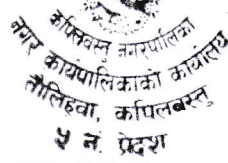 कपिलवस्तु नगरपालिका
नगर कार्यपालिकाको कार्यालय
तौलिहवा, कपिलबस्तु
५ नं. प्रदेश